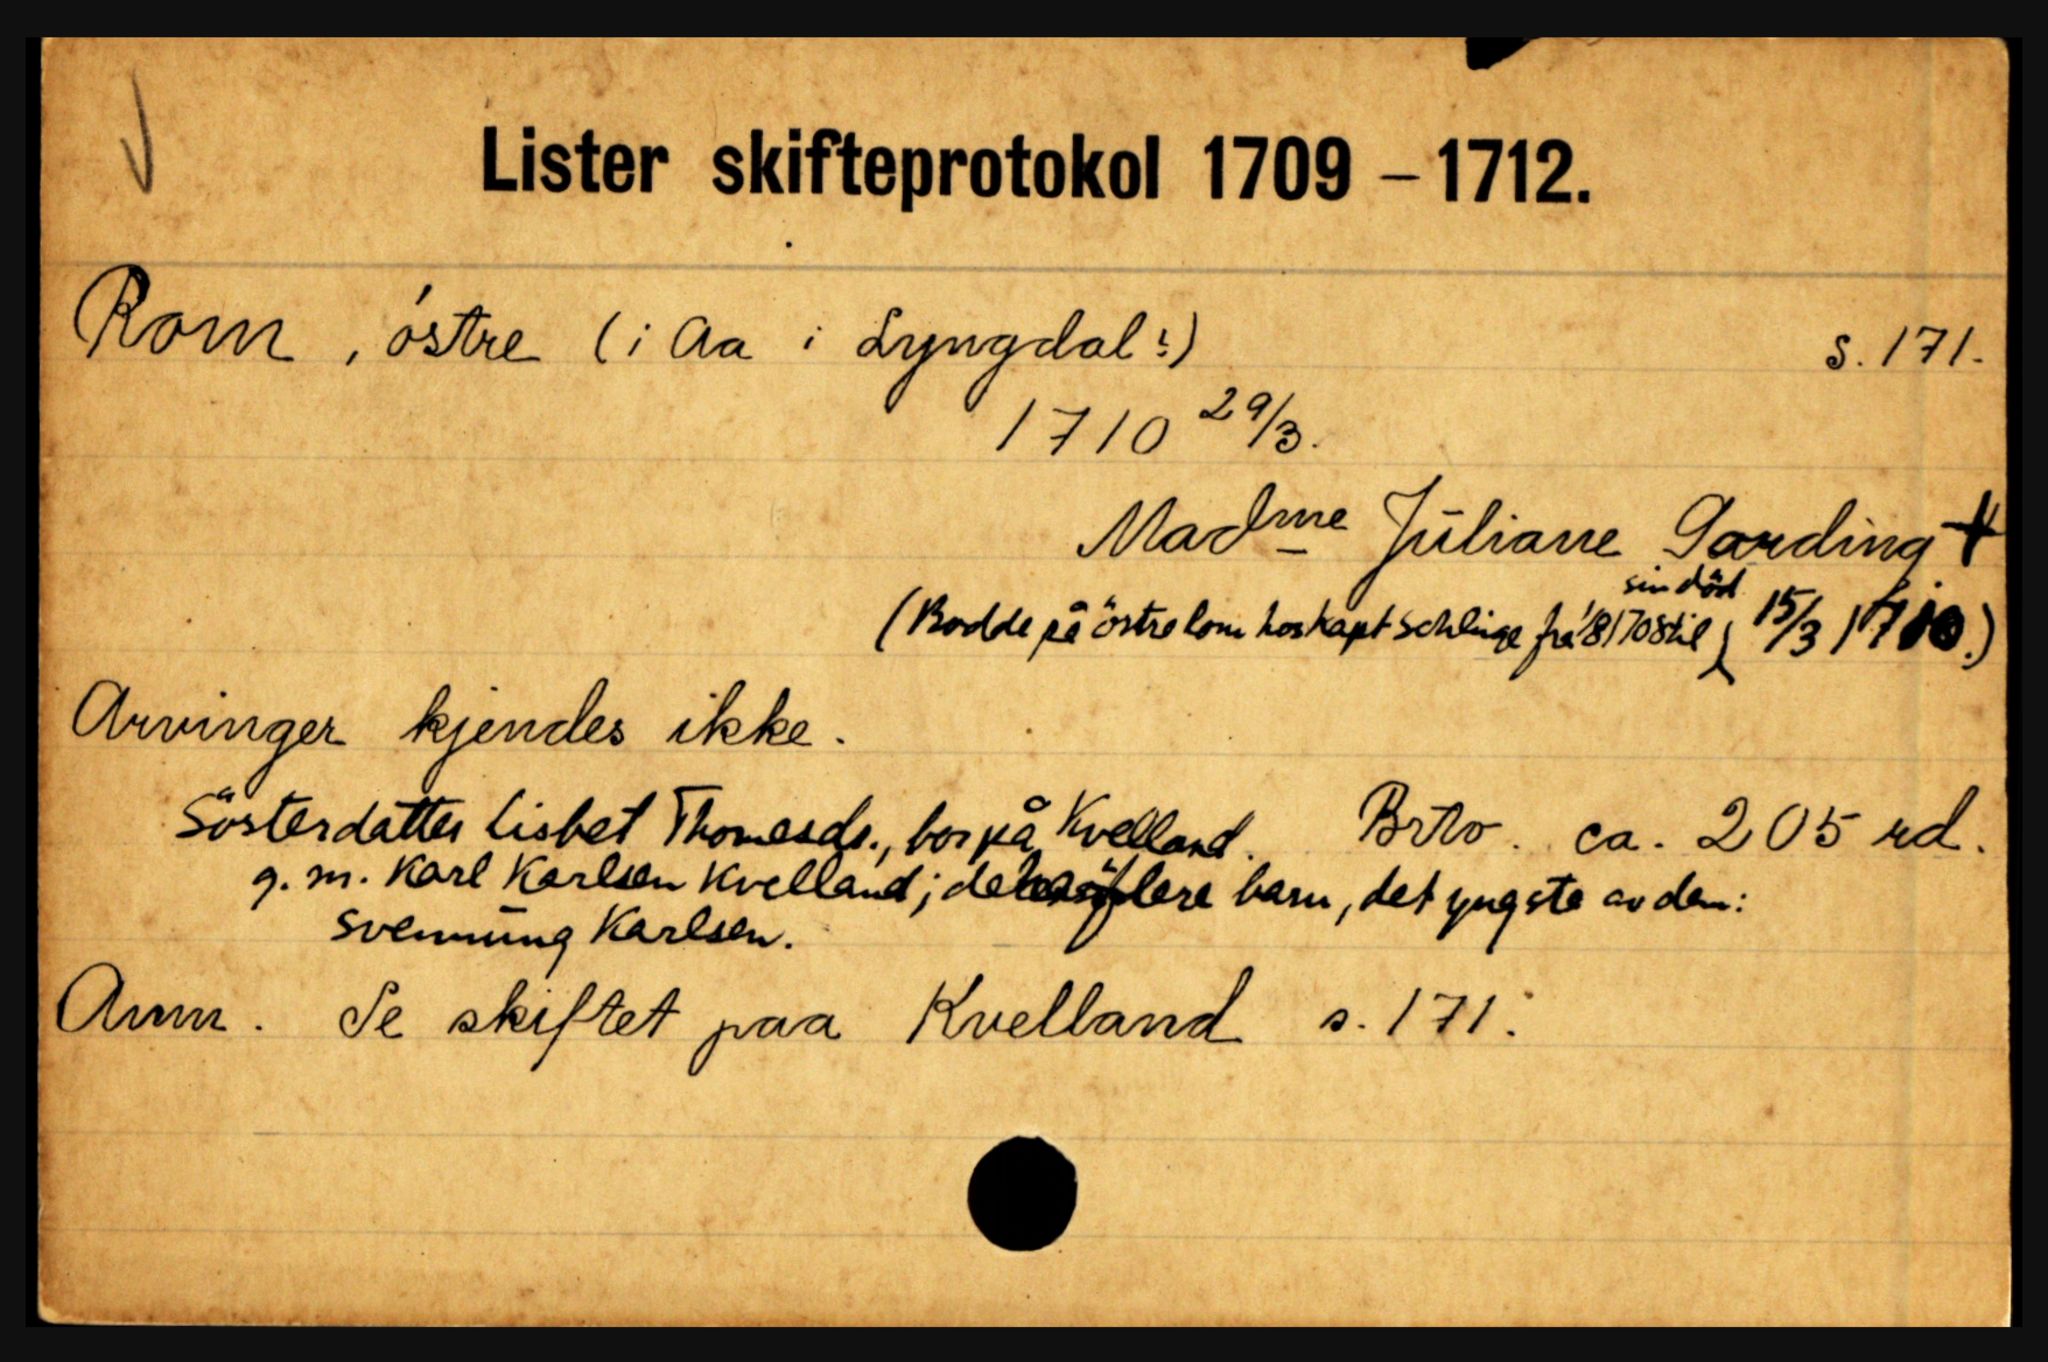 Lister skifteprotokol 1709 – 1712.
Rom, östre (i Aa i Lyngdal?) s. 171.
1710 29/3.
Madme Juliane Garding +
(Bodde på östre Rom hos kapt Schlinge frå 1/8 1708 til sin död 15/3 1710.)
Arvinger kjendes ikke.
Sösterdatter Lisbet Thomesdr., bor på Kvelland. Brto. ca. 205 rd.
g. m. Karl Karlsen Kvelland; de flere barn, det yngste av dem:
Svennung Karlsen.
Anm. Se skiftet paa Kvelland s. 171.